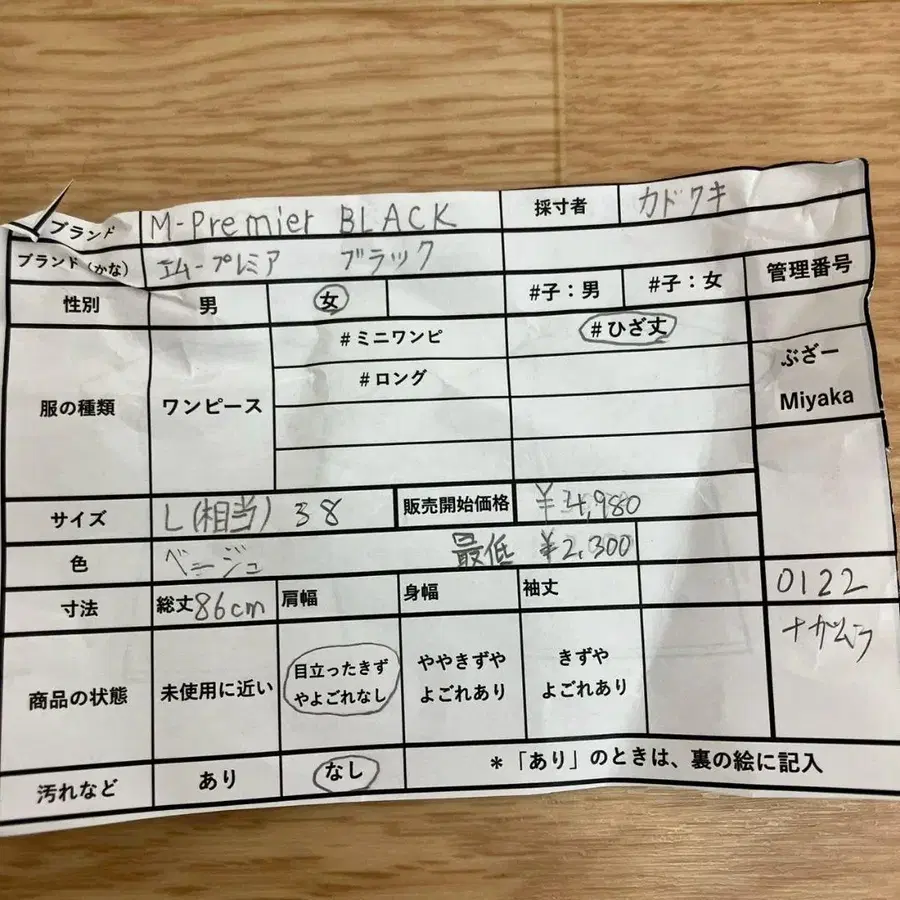 ブランド M-Premier BLACK 採寸者 カドワキ
ブランド（かな） エムープレミア ブラック
性別 男 女 #子：男 #子：女 管理番号
服の種類 ワンピース #ミニワンピ #ひざ丈
#ロング
ぶざー
Miyaka
サイズ L(相当) 38 販売開始価格 ¥4,980
色 ベージュ 最低 ¥2,300
寸法 総丈86cm 肩幅 身幅 袖丈 0122
ナガムラ
商品の状態 未使用に近い 目立ったきず ややきずや きずや
やよごれなし よごれあり よごれあり
汚れなど あり なし ＊「あり」のときは、裏の絵に記入